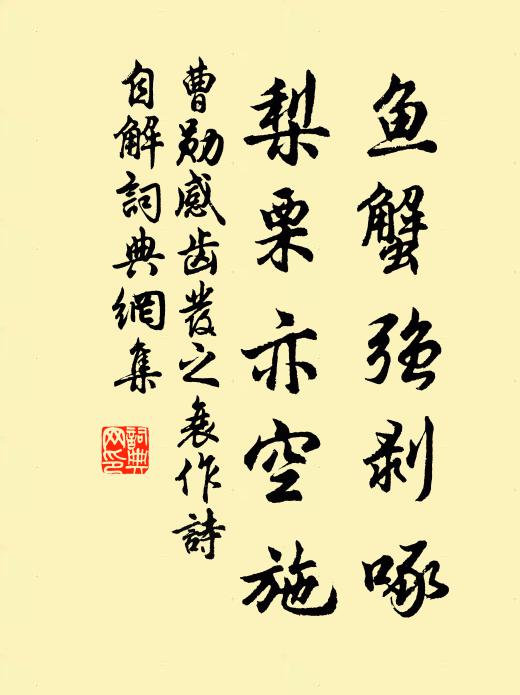 鱼蟹强剥啄
梨栗亦空施
曹勋感齿发之衰作詩
自解詞典網集
詞典
网印